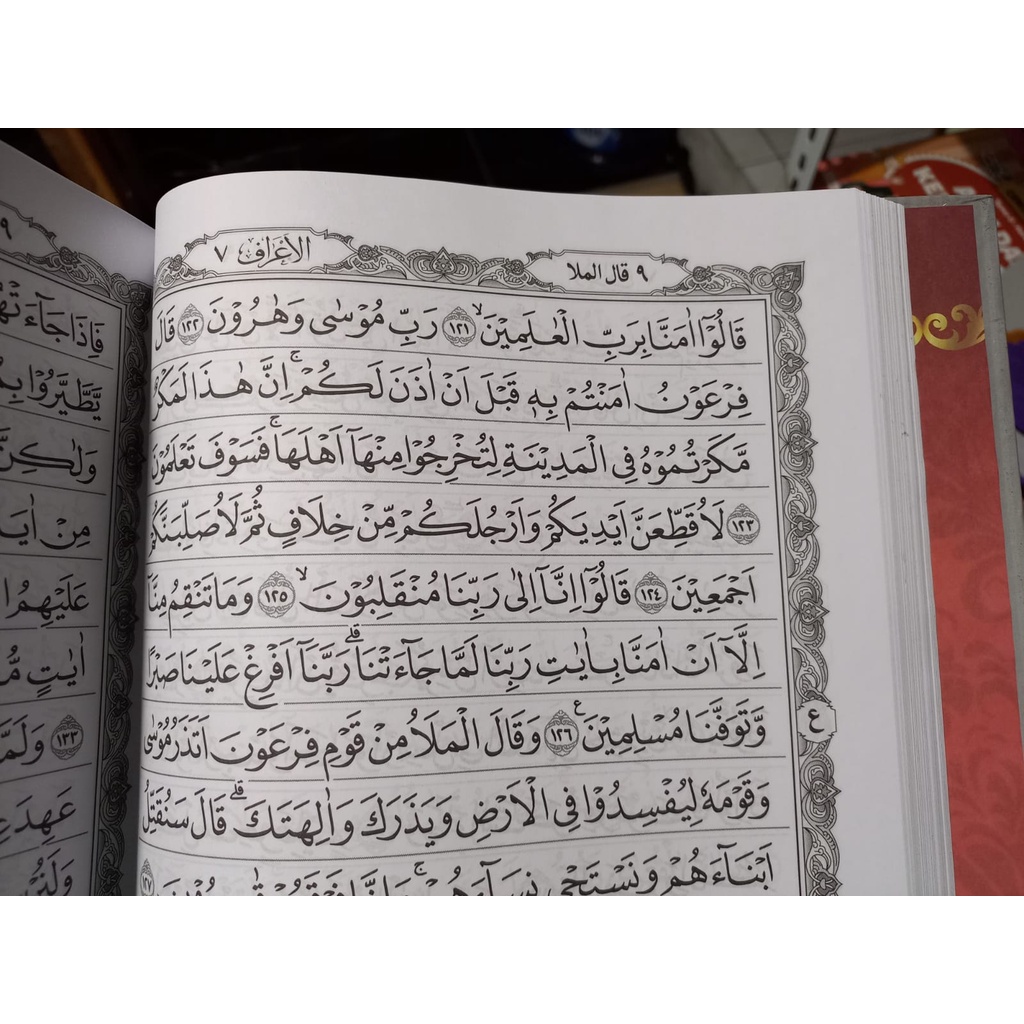 ٩ قال الملا
الأعراف ٧
قَالُوْٓا اٰمَنَّا بِرَبِّ الْعٰلَمِيْنَۙ ١٢١ رَبِّ مُوْسٰى وَهٰرُوْنَ ١٢٢ قَالَ
فِرْعَوْنُ اٰمَنْتُمْ بِهٖ قَبْلَ اَنْ اٰذَنَ لَكُمْۚ اِنَّ هٰذَا لَمَكْرٌ
مَّكَرْتُمُوْهُ فِى الْمَدِيْنَةِ لِتُخْرِجُوْا مِنْهَآ اَهْلَهَاۚ فَسَوْفَ تَعْلَمُوْنَ
١٢٣ لَاُقَطِّعَنَّ اَيْدِيَكُمْ وَاَرْجُلَكُمْ مِّنْ خِلَافٍ ثُمَّ لَاُصَلِّبَنَّكُمْ
اَجْمَعِيْنَ ١٢٤ قَالُوْٓا اِنَّآ اِلٰى رَبِّنَا مُنْقَلِبُوْنَۙ ١٢٥ وَمَا تَنْقِمُ مِنَّآ
اِلَّآ اَنْ اٰمَنَّا بِاٰيٰتِ رَبِّنَا لَمَّا جَاۤءَتْنَاۗ رَبَّنَآ اَفْرِغْ عَلَيْنَا صَبْرًا
وَّتَوَفَّنَا مُسْلِمِيْنَ ࣖ ١٢٦ وَقَالَ الْمَلَاُ مِنْ قَوْمِ فِرْعَوْنَ اَتَذَرُ مُوْسٰى
ع
وَقَوْمَهٗ لِيُفْسِدُوْا فِى الْاَرْضِ وَيَذَرَكَ وَاٰلِهَتَكَۗ قَالَ سَنُقَتِّلُ
اَبْنَاۤءَهُمْ وَنَسْتَحْيٖ نِسَاۤءَهُمْۚ ١٢٧
٩
فَاِذَا جَاۤءَتْهُ
يَّطَّيَّرُوْا
وَلٰكِنَّ
مِنْ
عَلَيْهِمُ
اٰيٰتٍ
١٣٣ وَلَمَّا
عَهِدَ